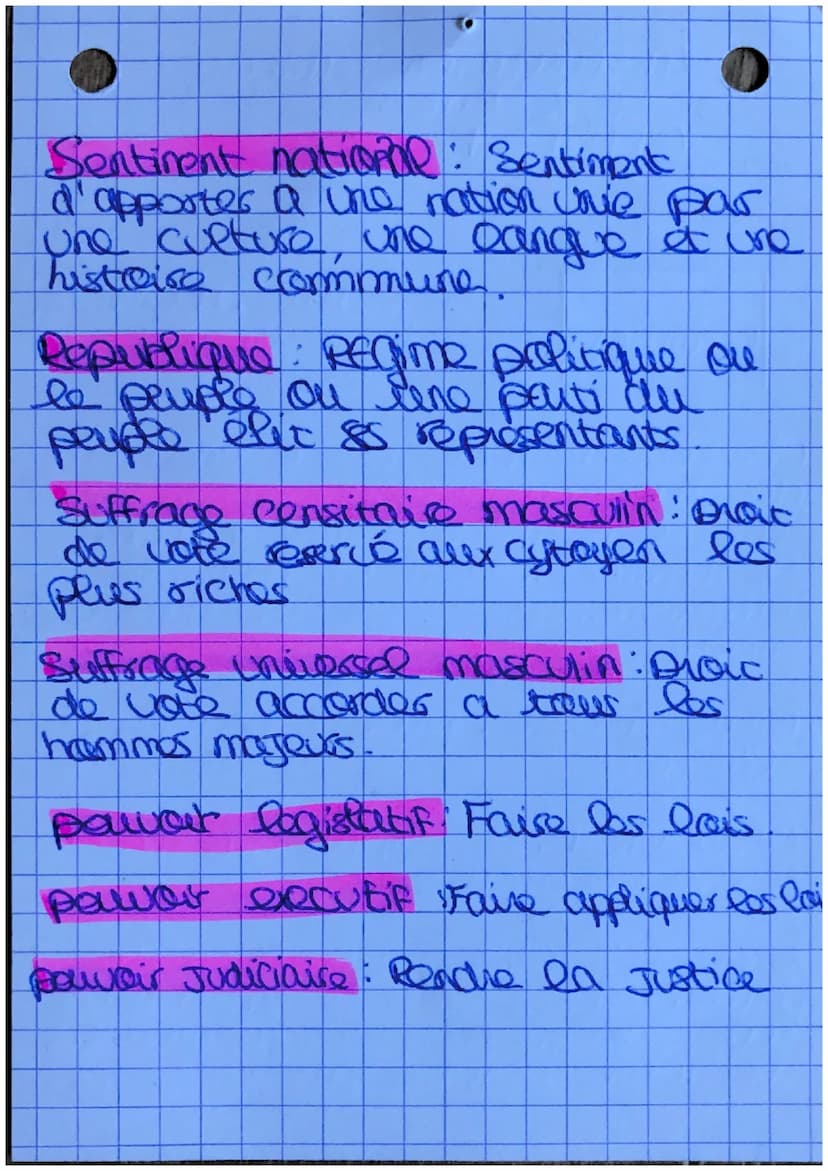 Sentiment national : Sentiment
d'apporter a une nation unie par
une culture, une langue et une
histoire commmune.
Republique : REGime politique ou
le peuple ou une parti du
peuple élit ses représentants.
Suffrage censitaire masculin : Droit
de vote éservé aux cytoyen les
plus riches
Suffrage universel masculin : Droit
de vote accordes a tous les
hommes majeurs.
pouvoir legislatif : Faire les lois.
pouvoir executif : Faire appliquer les loi
pouvoir Judiciaire : Rendre la Justice